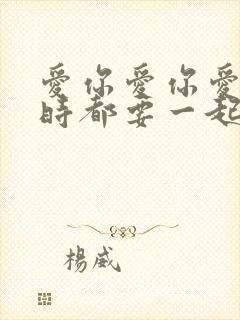 愛你愛你愛
時都要一起
楊威